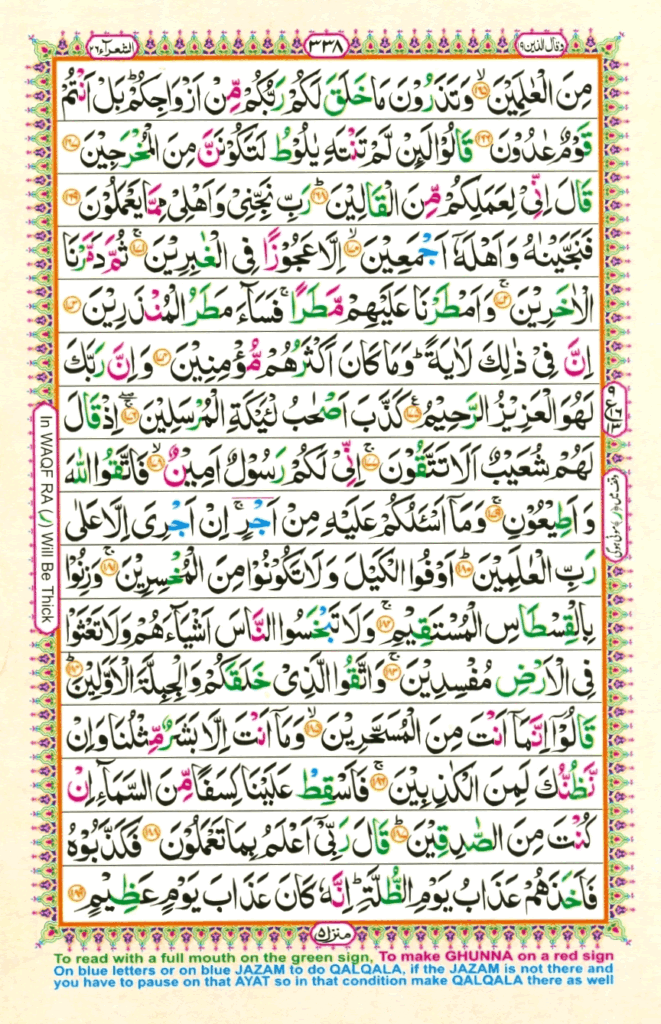 وقال الذين ١٩
٣٣٨
الشعرآء ٢٦
مِنَ الْعٰلَمِيْنَ ۙ‏﴿۱۶۵﴾ وَتَذَرُوْنَ مَا خَلَقَ لَكُمْ رَبُّكُمْ مِّنْ اَزْوَاجِكُمْ ؕ بَلْ اَنْتُمْ
قَوْمٌ عٰدُوْنَ ‏﴿۱۶۶﴾ قَالُوْا لَئِنْ لَّمْ تَنْتَهِ يٰلُوْطُ لَتَكُوْنَنَّ مِنَ الْمُخْرَجِيْنَ ‏﴿۱۶۷﴾
قَالَ اِنِّىْ لِعَمَلِكُمْ مِّنَ الْقَالِيْنَ ؕ‏﴿۱۶۸﴾ رَبِّ نَجِّنِىْ وَاَهْلِىْ مِمَّا يَعْمَلُوْنَ ‏﴿۱۶۹﴾
فَنَجَّيْنٰهُ وَاَهْلَهٗۤ اَجْمَعِيْنَ ۙ‏﴿۱۷۰﴾ اِلَّا عَجُوْزًا فِى الْغٰبِرِيْنَ ۚ‏﴿۱۷۱﴾ ثُمَّ دَمَّرْنَا
الْاٰخَرِيْنَ ۚ‏﴿۱۷۲﴾ وَاَمْطَرْنَا عَلَيْهِمْ مَّطَرًا ۚ فَسَآءَ مَطَرُ الْمُنْذَرِيْنَ ‏﴿۱۷۳﴾
اِنَّ فِىْ ذٰلِكَ لَاٰيَةً ؕ وَمَا كَانَ اَكْثَرُهُمْ مُّؤْمِنِيْنَ ‏﴿۱۷۴﴾ وَاِنَّ رَبَّكَ
لَهُوَ الْعَزِيْزُ الرَّحِيْمُ ‏﴿۱۷۵﴾ كَذَّبَ اَصْحٰبُ لْئَيْكَةِ الْمُرْسَلِيْنَ ۖۚ‏﴿۱۷۶﴾ اِذْ قَالَ
لَهُمْ شُعَيْبٌ اَلَا تَتَّقُوْنَ ۚ‏﴿۱۷۷﴾ اِنِّىْ لَكُمْ رَسُوْلٌ اَمِيْنٌ ۙ‏﴿۱۷۸﴾ فَاتَّقُوا اللّٰهَ
وَاَطِيْعُوْنِ ۚ‏﴿۱۷۹﴾ وَمَاۤ اَسْئَلُكُمْ عَلَيْهِ مِنْ اَجْرٍ ۚ اِنْ اَجْرِىَ اِلَّا عَلٰى
رَبِّ الْعٰلَمِيْنَ ؕ‏﴿۱۸۰﴾ اَوْفُوا الْكَيْلَ وَلَا تَكُوْنُوْا مِنَ الْمُخْسِرِيْنَ ۚ‏﴿۱۸۱﴾ وَزِنُوْا
بِالْقِسْطَاسِ الْمُسْتَقِيْمِ ۚ‏﴿۱۸۲﴾ وَلَا تَبْخَسُوا النَّاسَ اَشْيَآءَهُمْ وَلَا تَعْثَوْا
فِى الْاَرْضِ مُفْسِدِيْنَ ۚ‏﴿۱۸۳﴾ وَاتَّقُوا الَّذِىْ خَلَقَكُمْ وَالْجِبِلَّةَ الْاَوَّلِيْنَ ؕ‏﴿۱۸۴﴾
قَالُوْۤا اِنَّمَاۤ اَنْتَ مِنَ الْمُسَحَّرِيْنَ ۙ‏﴿۱۸۵﴾ وَمَاۤ اَنْتَ اِلَّا بَشَرٌ مِّثْلُنَا وَاِنْ
نَّظُنُّكَ لَمِنَ الْكٰذِبِيْنَ ۚ‏﴿۱۸۶﴾ فَاَسْقِطْ عَلَيْنَا كِسَفًا مِّنَ السَّمَآءِ اِنْ
كُنْتَ مِنَ الصّٰدِقِيْنَ ؕ‏﴿۱۸۷﴾ قَالَ رَبِّىْۤ اَعْلَمُ بِمَا تَعْمَلُوْنَ ‏﴿۱۸۸﴾ فَكَذَّبُوْهُ
فَاَخَذَهُمْ عَذَابُ يَوْمِ الظُّلَّةِ ؕ اِنَّهٗ كَانَ عَذَابَ يَوْمٍ عَظِيْمٍ ‏﴿۱۸۹﴾
منزل ۵
In WAQF RA (ر) Will Be Thick
To read with a full mouth on the green sign, To make GHUNNA on a red sign
On blue letters or on blue JAZAM to do QALQALA, if the JAZAM is not there and
you have to pause on that AYAT so in that condition make QALQALA there as well